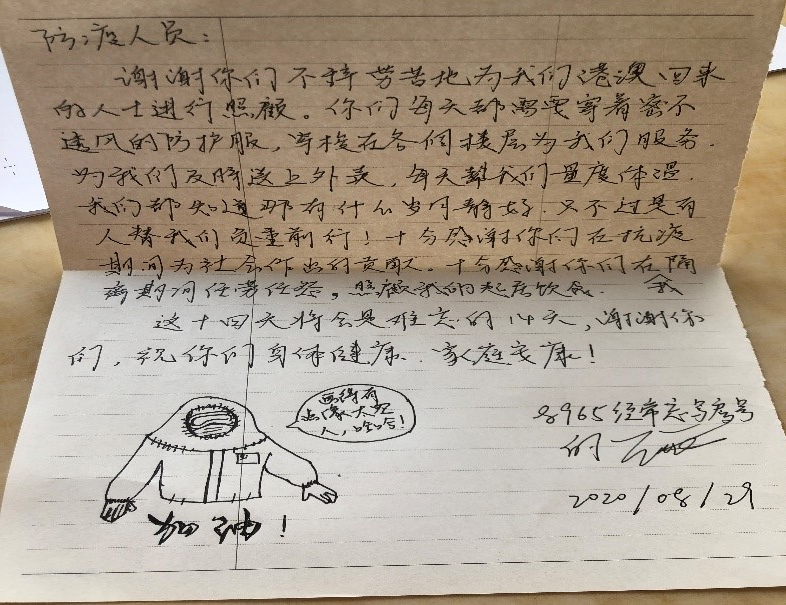 防疫人员：
谢谢你们不辞劳苦地为我们港澳回来
的人士进行照顾。你们每天都需要穿着密不
透风的防护服，穿梭在各個楼层为我们服务.
为我们及時送上外卖，每天幫我们量度体温.
我们都知道那有什么岁月静好.只不过是有
人替我们负重前行！十分感谢你们在抗疫
期间为社会作出的贡献。十分感谢你们在隔
离期间任劳任怨，照顾我的起居饮食. 我
这十四天将会是难忘的14天，谢谢你
们，祝你们身体健康.家庭安康！
画得有
点像太空
人，哈哈！
8965经常忘写房号
的
2020/08/29
！